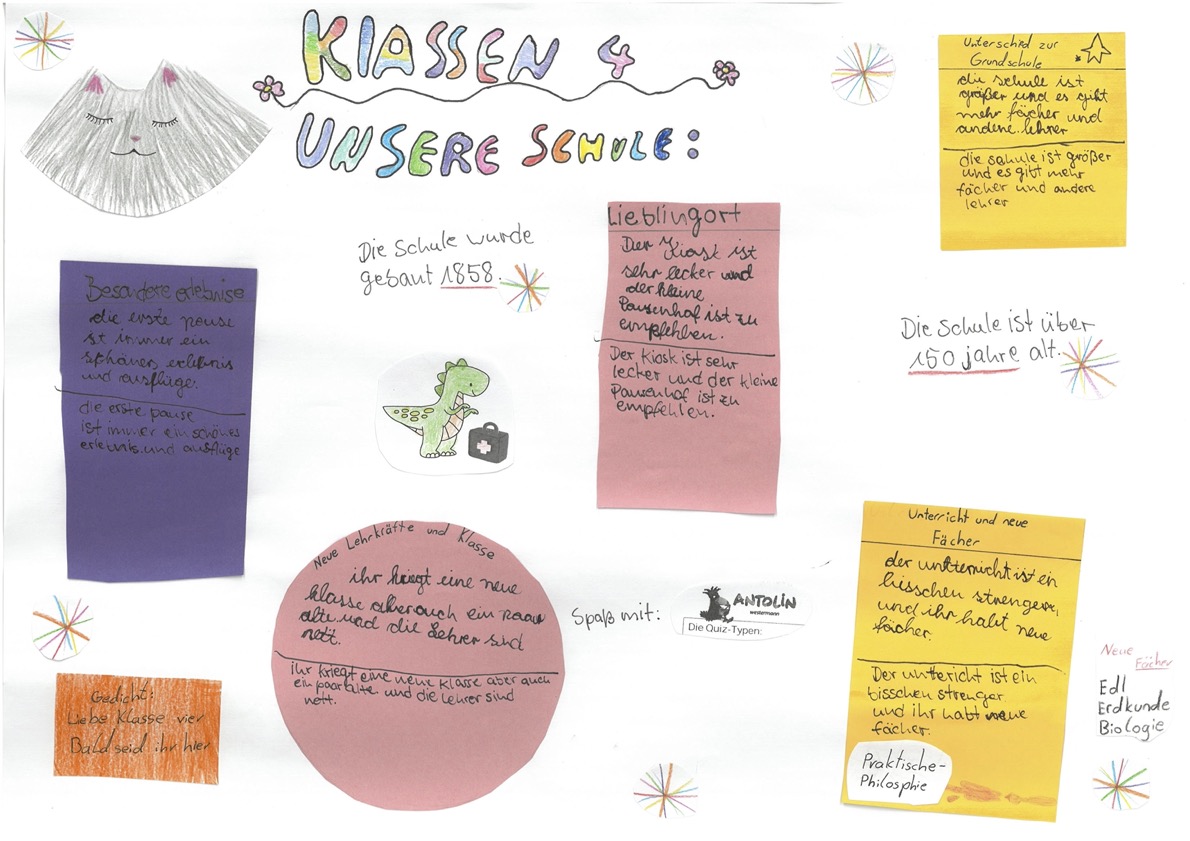 KlASSEN 4
UNSERE SCHULE:
Unterschied zur
Grundschule
die schule ist
größer und es gibt
mehr fächer und
andere lehrer
die schule ist größer
und es gibt mehr
fächer und andere
lehrer
Die Schule wurde
gebaut 1858.
Lieblingort
Der Kiosk ist
sehr lecker und
der kleine
Pausenhof ist zu
empfehlen.
Der Kiosk ist sehr
lecker und der kleine
Pausenhof ist zu
empfehlen.
Die Schule ist über
150 jahre alt.
Besondere erlebnise
die erste pause
ist immer ein
schönes erlebnis
und ausflüge.
die erste pause
ist immer ein schönes
erlebnis und ausflüge
Neue Lehrkräfte und Klasse
ihr kriegt eine neue
klasse aber auch ein paar
alte und die Lehrer sind
nett.
ihr kriegt eine neue Klasse aber auch
ein paar alte und die lehrer sind
nett.
Spaß mit:
ANTOLIN
westermann
Die Quiz-Typen:
Unterricht und neue
Fächer
der untterricht ist ein
bisschen strenger
und ihr habt neue
fächer.
Der unttericht ist ein
bisschen strenger
und ihr habt neue
fächer.
Praktische-
Philosphie
Neue
Fächer
Edl
Erdkunde
Biologie
Gedicht:
Liebe Klasse vier
Bald seid ihr hier